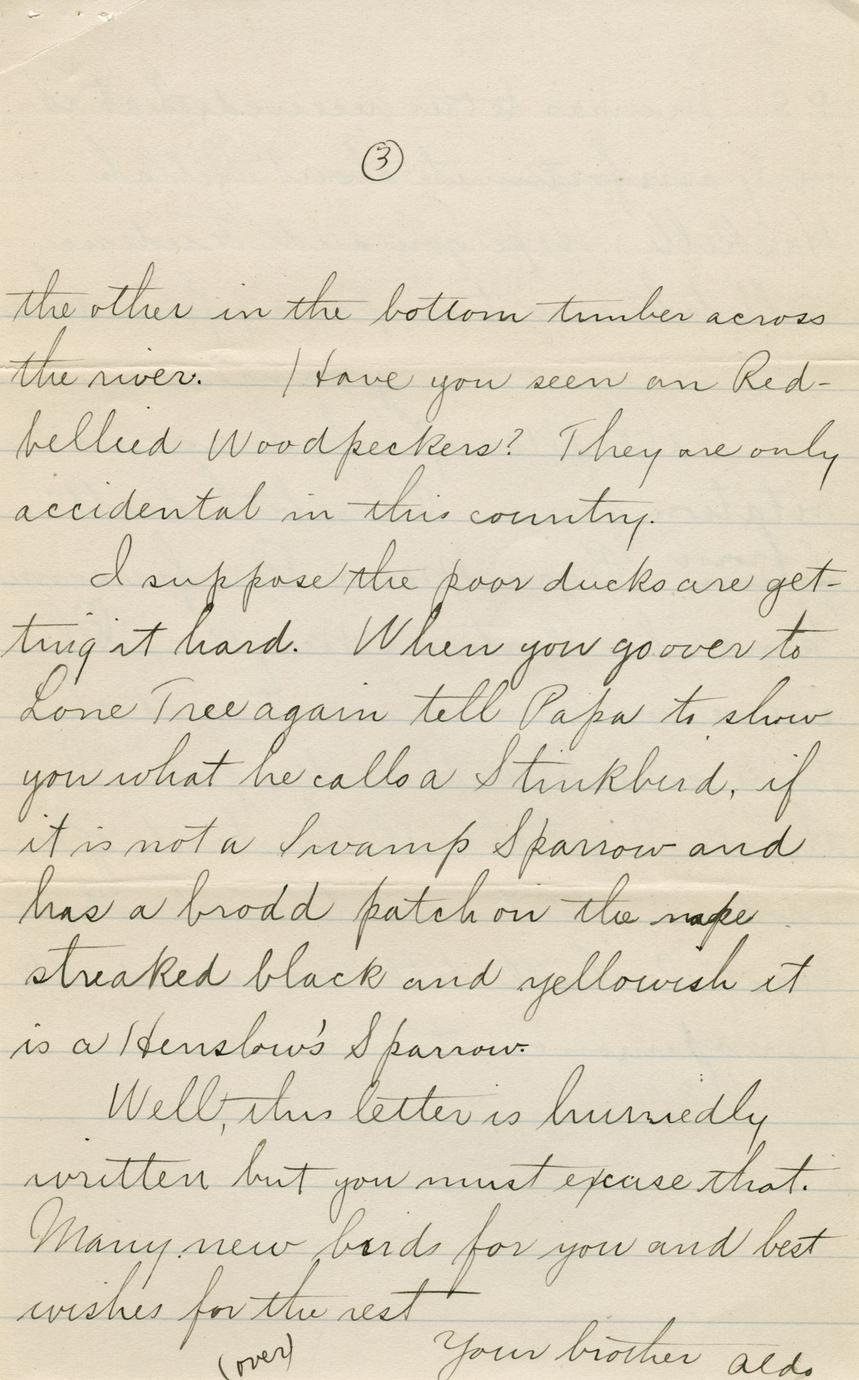 3
the other in the bottom timber across
the river. Have you seen an Red-
bellied Woodpeckers? They are only
accidental in this country.
I suppose the poor ducks are get-
ting it hard. When you go over to
Lone Tree again tell Papa to show
you what he calls a Stinkbird, if
it is not a Swamp Sparrow and
has a brodd patch on the nape
streaked black and yellowish it
is a Henslow's Sparrow.
Well, this letter is hurriedly
written but you must excuse that.
Many new birds for you and best
wishes for the rest
Your brother Aldo
(over)